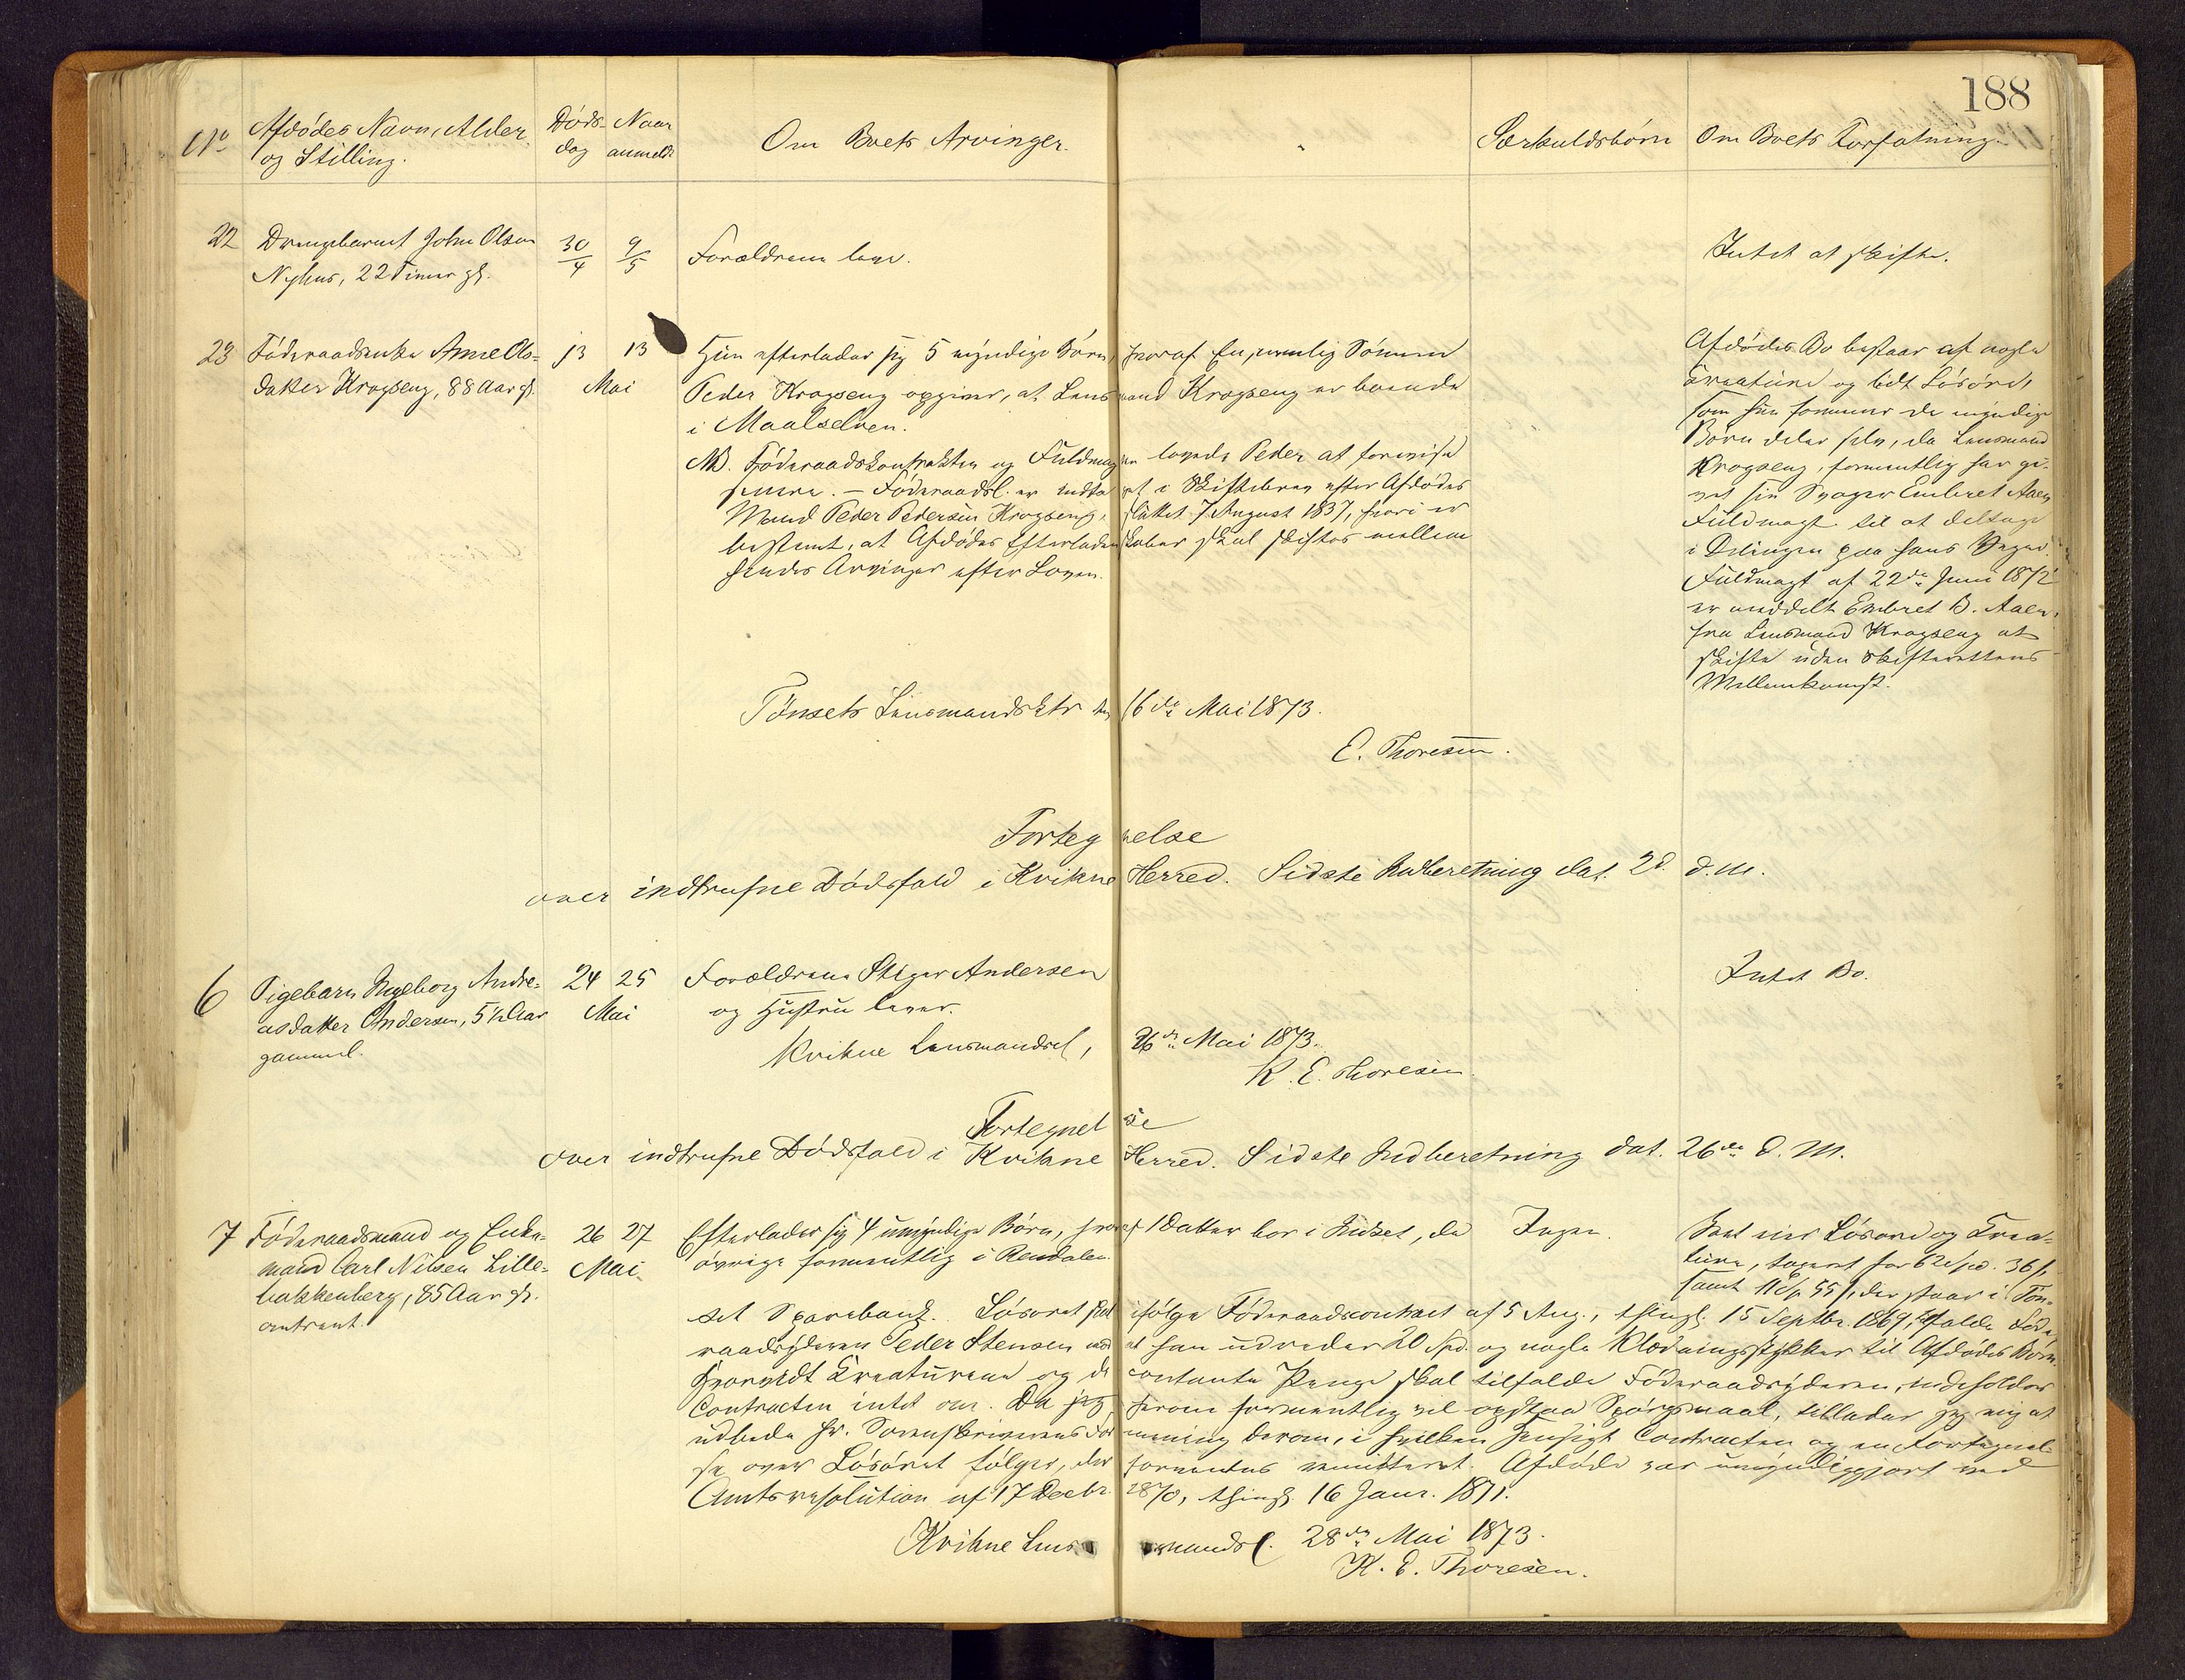 188
No
Afdødes Navn, Alder
og Stilling.
Døds-
dag
Naar
anmeldt
Om Boets Arvinger.
Særkuldsbørn
Om Boets Forfatning.
22
Drengebarnet John Olsen
Nyhus, 22 Timer gl.
30/4
9/5
Forældrene leve.
Intet at skifte.
23
Føderaadsenke Anne Ols-
datter Krogseng, 88 Aar gl.
13
13
Mai
Hun efterlader sig 5 myndige Børn, hvoraf En, nemlig Sønnen
Peder Krogseng opgiver, at Lensmand Krogseng er boende
i Maalselven.
NB. Føderaadskontrakten og Fuldmagten lovede Peder at forevise
senere. – Føderaadsl. er indtaget i Skiftebrev efter Afdødes
Mand Peder Pedersen Krogseng, sluttet 7 August 1837, hvori er
bestemt, at Afdødes Efterladenskaber skal skiftes mellem
hendes Arvinger efter Loven.
Afdødes Bo bestaar af nogle
Creature og lidt Løsøre,
som hun sammen de myndige
Børn deler selv, da Lensmand
Krogseng, formentlig har gi-
vet sin Svoger Embret Aaen
Fuldmagt til at deltage
i Delingen paa hans Vegne.
Fuldmagt af 22de Juni 1872
er meddelt Embret B. Aaen
fra Lensmand Krogseng at
skifte uden Skifterettens
Mellemkomst.
Tønsets Lensmandsktr den 16de Mai 1873.
E. Thoresen.
Fortegnelse
over indtrufne Dødsfald i Kvikne Herred. Sidste Indberetning dat. 2d. d. M.
6
Pigebarn Ingeborg Andre-
asdatter Andersen, 5½ Aar
gammel.
24
25
Mai
Forældrene Stiger Andersen
og Hustru lever.
Intet Bo.
Kvikne Lensmandsd, 26de Mai 1873.
K. E. Thoresen.
Fortegnelse
over indtrufne Dødsfald i Kvikne Herred. Sidste Indberetning dat. 26de d. M.
7
Føderaadsmand og Enke-
mand Carl Nilsen Lille-
bakkenberg, 85 Aar gl.
omtrent.
26
27
Mai
Efterlader sig 4 umyndige Børn, hvoraf 1 Datter bor i Indset, de
øvrige formentlig i Rendalen.
Ingen.
Boet eier Løsøre og Crea-
ture, taxeret for 62 Spd. 36 s,
samt 11 Sp. 55 s, der staar i Tøn-
set Sparebank. Løsøret skal ifølge Føderaadscontract af 5 Aug., thingl. 15 Septbr. 1869, tilfalde Føde-
raadsyderen Peder Stensen mod at han udreder 20 Spd. og nogle Klædningsstykker til Afdødes Børn.
Hvorvidt Creaturene og de contante Penge skal tilfalde Føderaadsyderen, indeholder
Contracten intet om. Da jeg, herom formentlig vil opstaa Spørgsmaal, tillader jeg mig at
udbede Hr. Sorenskriverens Formening derom, i hvilken Hensigt Contracten og en Fortegnel-
se over Løsøret følger, der forventes remitteret. Afdøde var umyndiggjort ved
Amtsresolution af 17 Decbr. 1870, thingl. 16 Janr. 1871.
Kvikne Lensmandsd. 28de Mai 1873.
K. E. Thoresen.